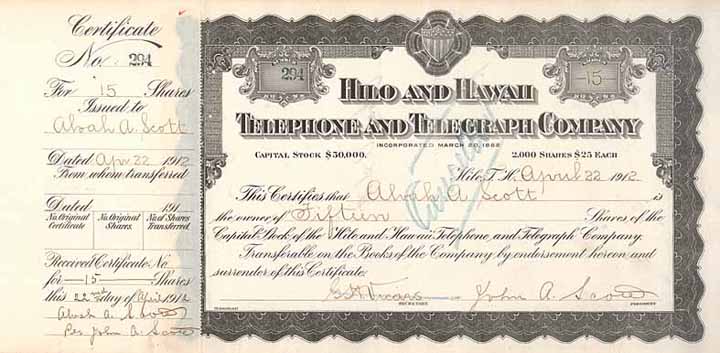 Certificate
No. 294
For 15 Shares
Issued to
Alvah A. Scott
Dated Apr. 22 1912
From whom transferred
Dated 191
No. Original Certificate
No. Original Shares.
No. of Shares Transferred.
Received Certificate No.
for —15— Shares
this 22nd day of April 1912
Alvah A. Scott
Per John A. Scott
294
15
HILO AND HAWAII
TELEPHONE AND TELEGRAPH COMPANY
INCORPORATED MARCH 20, 1888
CAPITAL STOCK $50,000.
2,000 SHARES $25 EACH
Hilo, T.H. April 22 1912.
This Certifies that Alvah A. Scott is
the owner of Fifteen Shares of the
Capital Stock of the Hilo and Hawaii Telephone and Telegraph Company.
Transferable on the Books of the Company by endorsement hereon and
surrender of this Certificate.
John A. Scott
SECRETARY
PRESIDENT